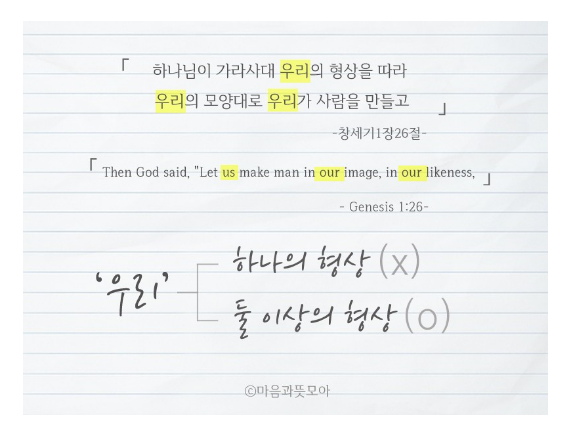 「 하나님이 가라사대 우리의 형상을 따라
우리의 모양대로 우리가 사람을 만들고 」
-창세기1장26절-
「 Then God said, "Let us make man in our image, in our likeness, 」
- Genesis 1:26-
'우리'
하나의 형상 (x)
둘 이상의 형상 (o)
©마음과뜻모아